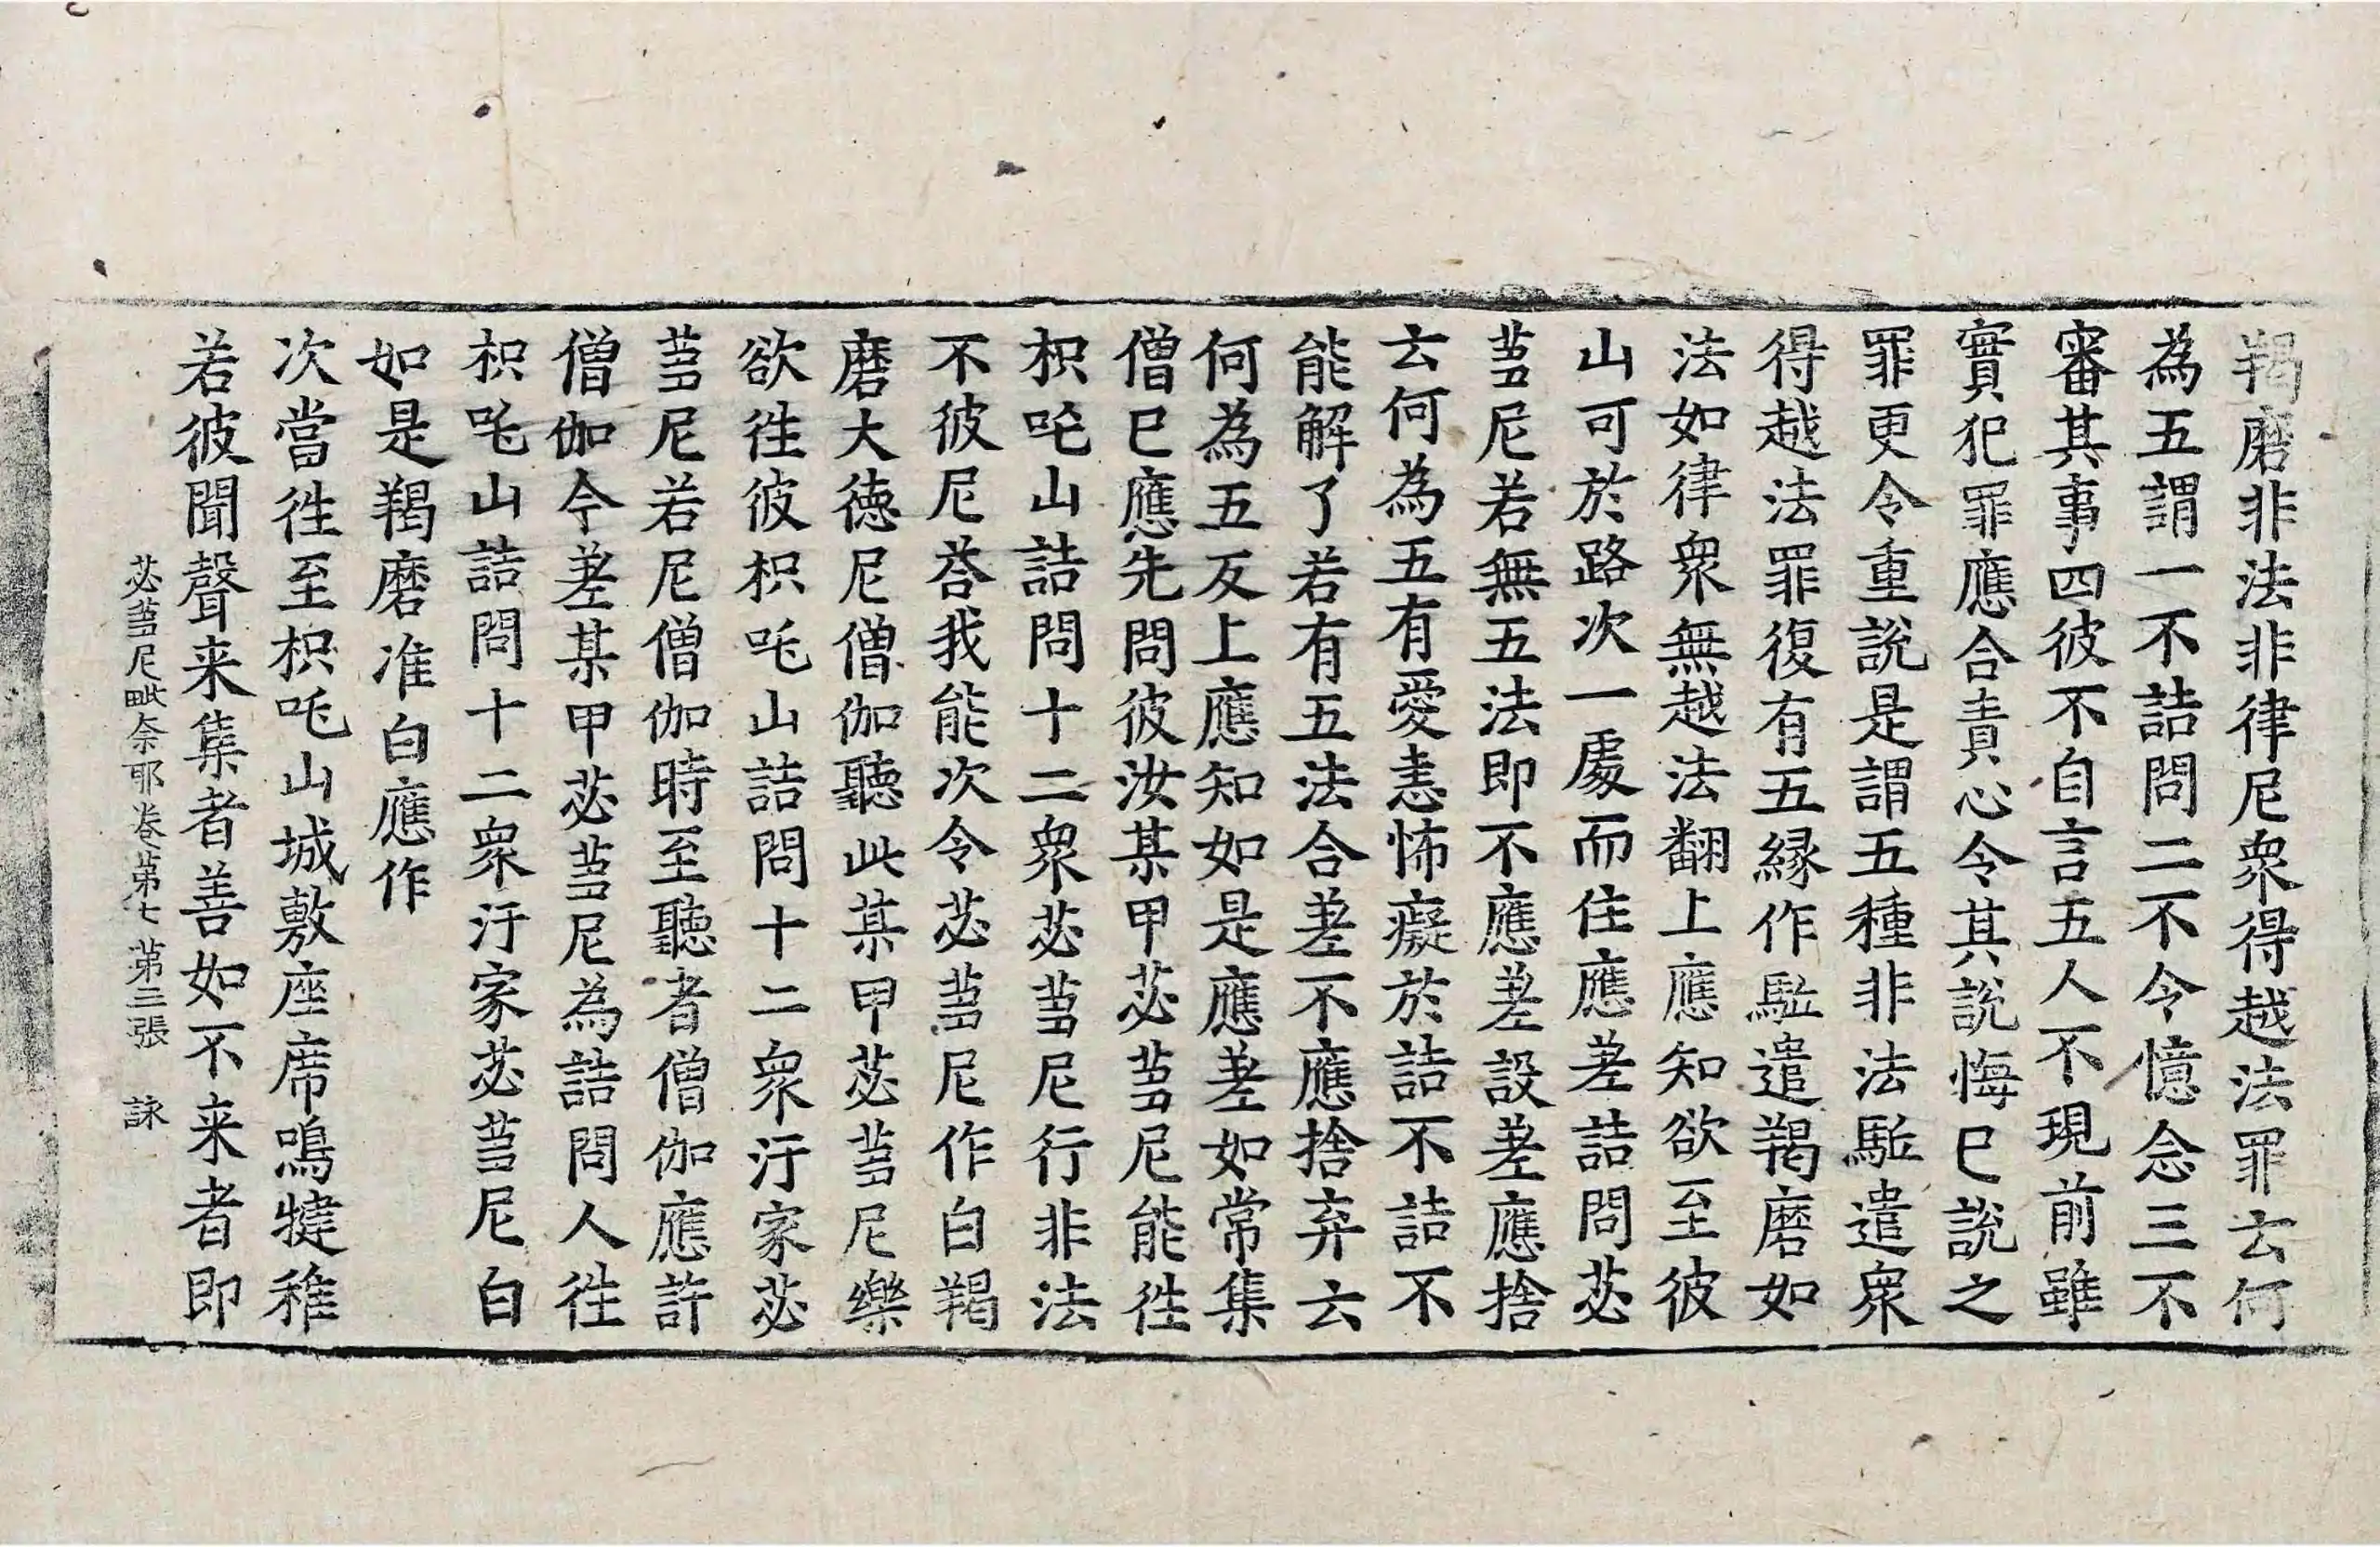 羯磨非法非律尼衆得越法罪云何
為五謂一不詰問二不令憶念三不
審其事四彼不自言五人不現前雖
實犯罪應合責心令其說悔已說之
罪更令重說是謂五種非法駈遣衆
得越法罪復有五緣作駈遣羯磨如
法如律衆無越法翻上應知欲至彼
山可於路次一處而住應差詰問苾
蒭尼若無五法即不應差設差應捨
云何為五有愛恚怖癡於詰不詰不
能解了若有五法合差不應捨弃云
何為五反上應知如是應差如常集
僧已應先問彼汝某甲苾蒭尼能徃
枳吒山詰問十二衆苾蒭尼行非法
不彼尼荅我能次令苾蒭尼作白羯
磨大德尼僧伽聽此某甲苾蒭尼樂
欲徃彼枳吒山詰問十二衆汙家苾
蒭尼若尼僧伽時至聽者僧伽應許
僧伽今差某甲苾蒭尼為詰問人徃
枳吒山詰問十二衆汙家苾蒭尼白
如是羯磨准白應作
次當徃至枳吒山城敷座席鳴犍稚
若彼聞聲来集者善如不来者即
苾蒭尼毗奈耶卷第七 第三張 詠